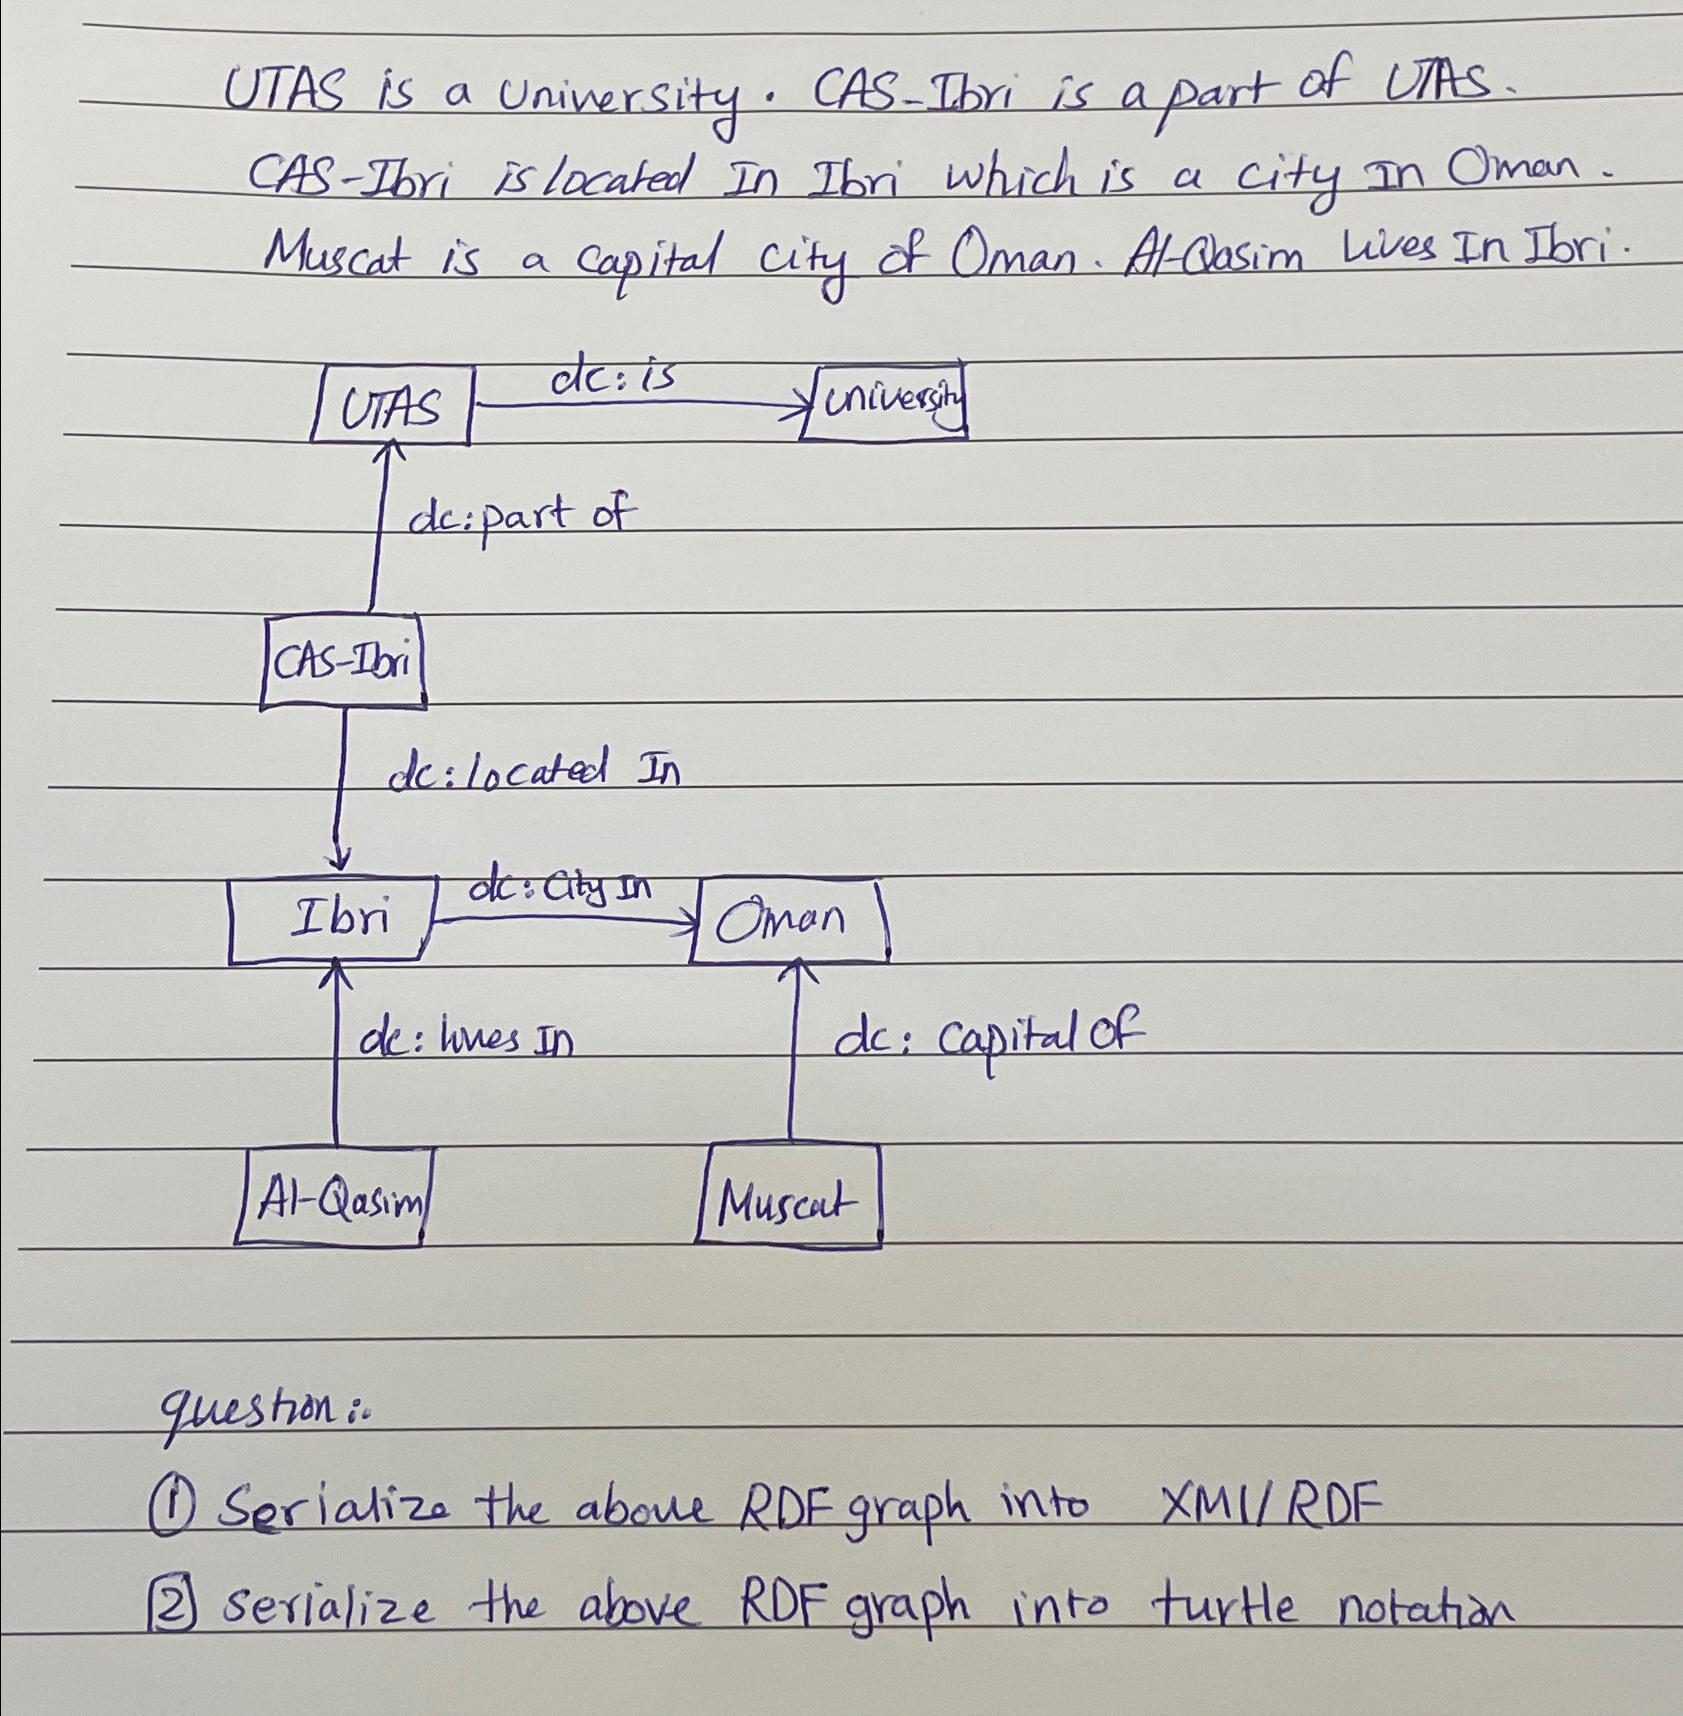 UTAS is a University. CAS-Ibri is a part of UTAS.
CAS-Ibri is located In Ibri which is a city In Oman.
Muscat is a capital city of Oman. Al-Qasim Lives In Ibri.
UTAS
dc: is
University
dc: part of
CAS-Ibri
dc: located In
Ibri
dc: City In
Oman
dc: lives In
dc: capital of
Al-Qasim
Muscat
question:
① Serialize the above RDF graph into XMl/RDF
2 serialize the above RDF graph into turtle notation